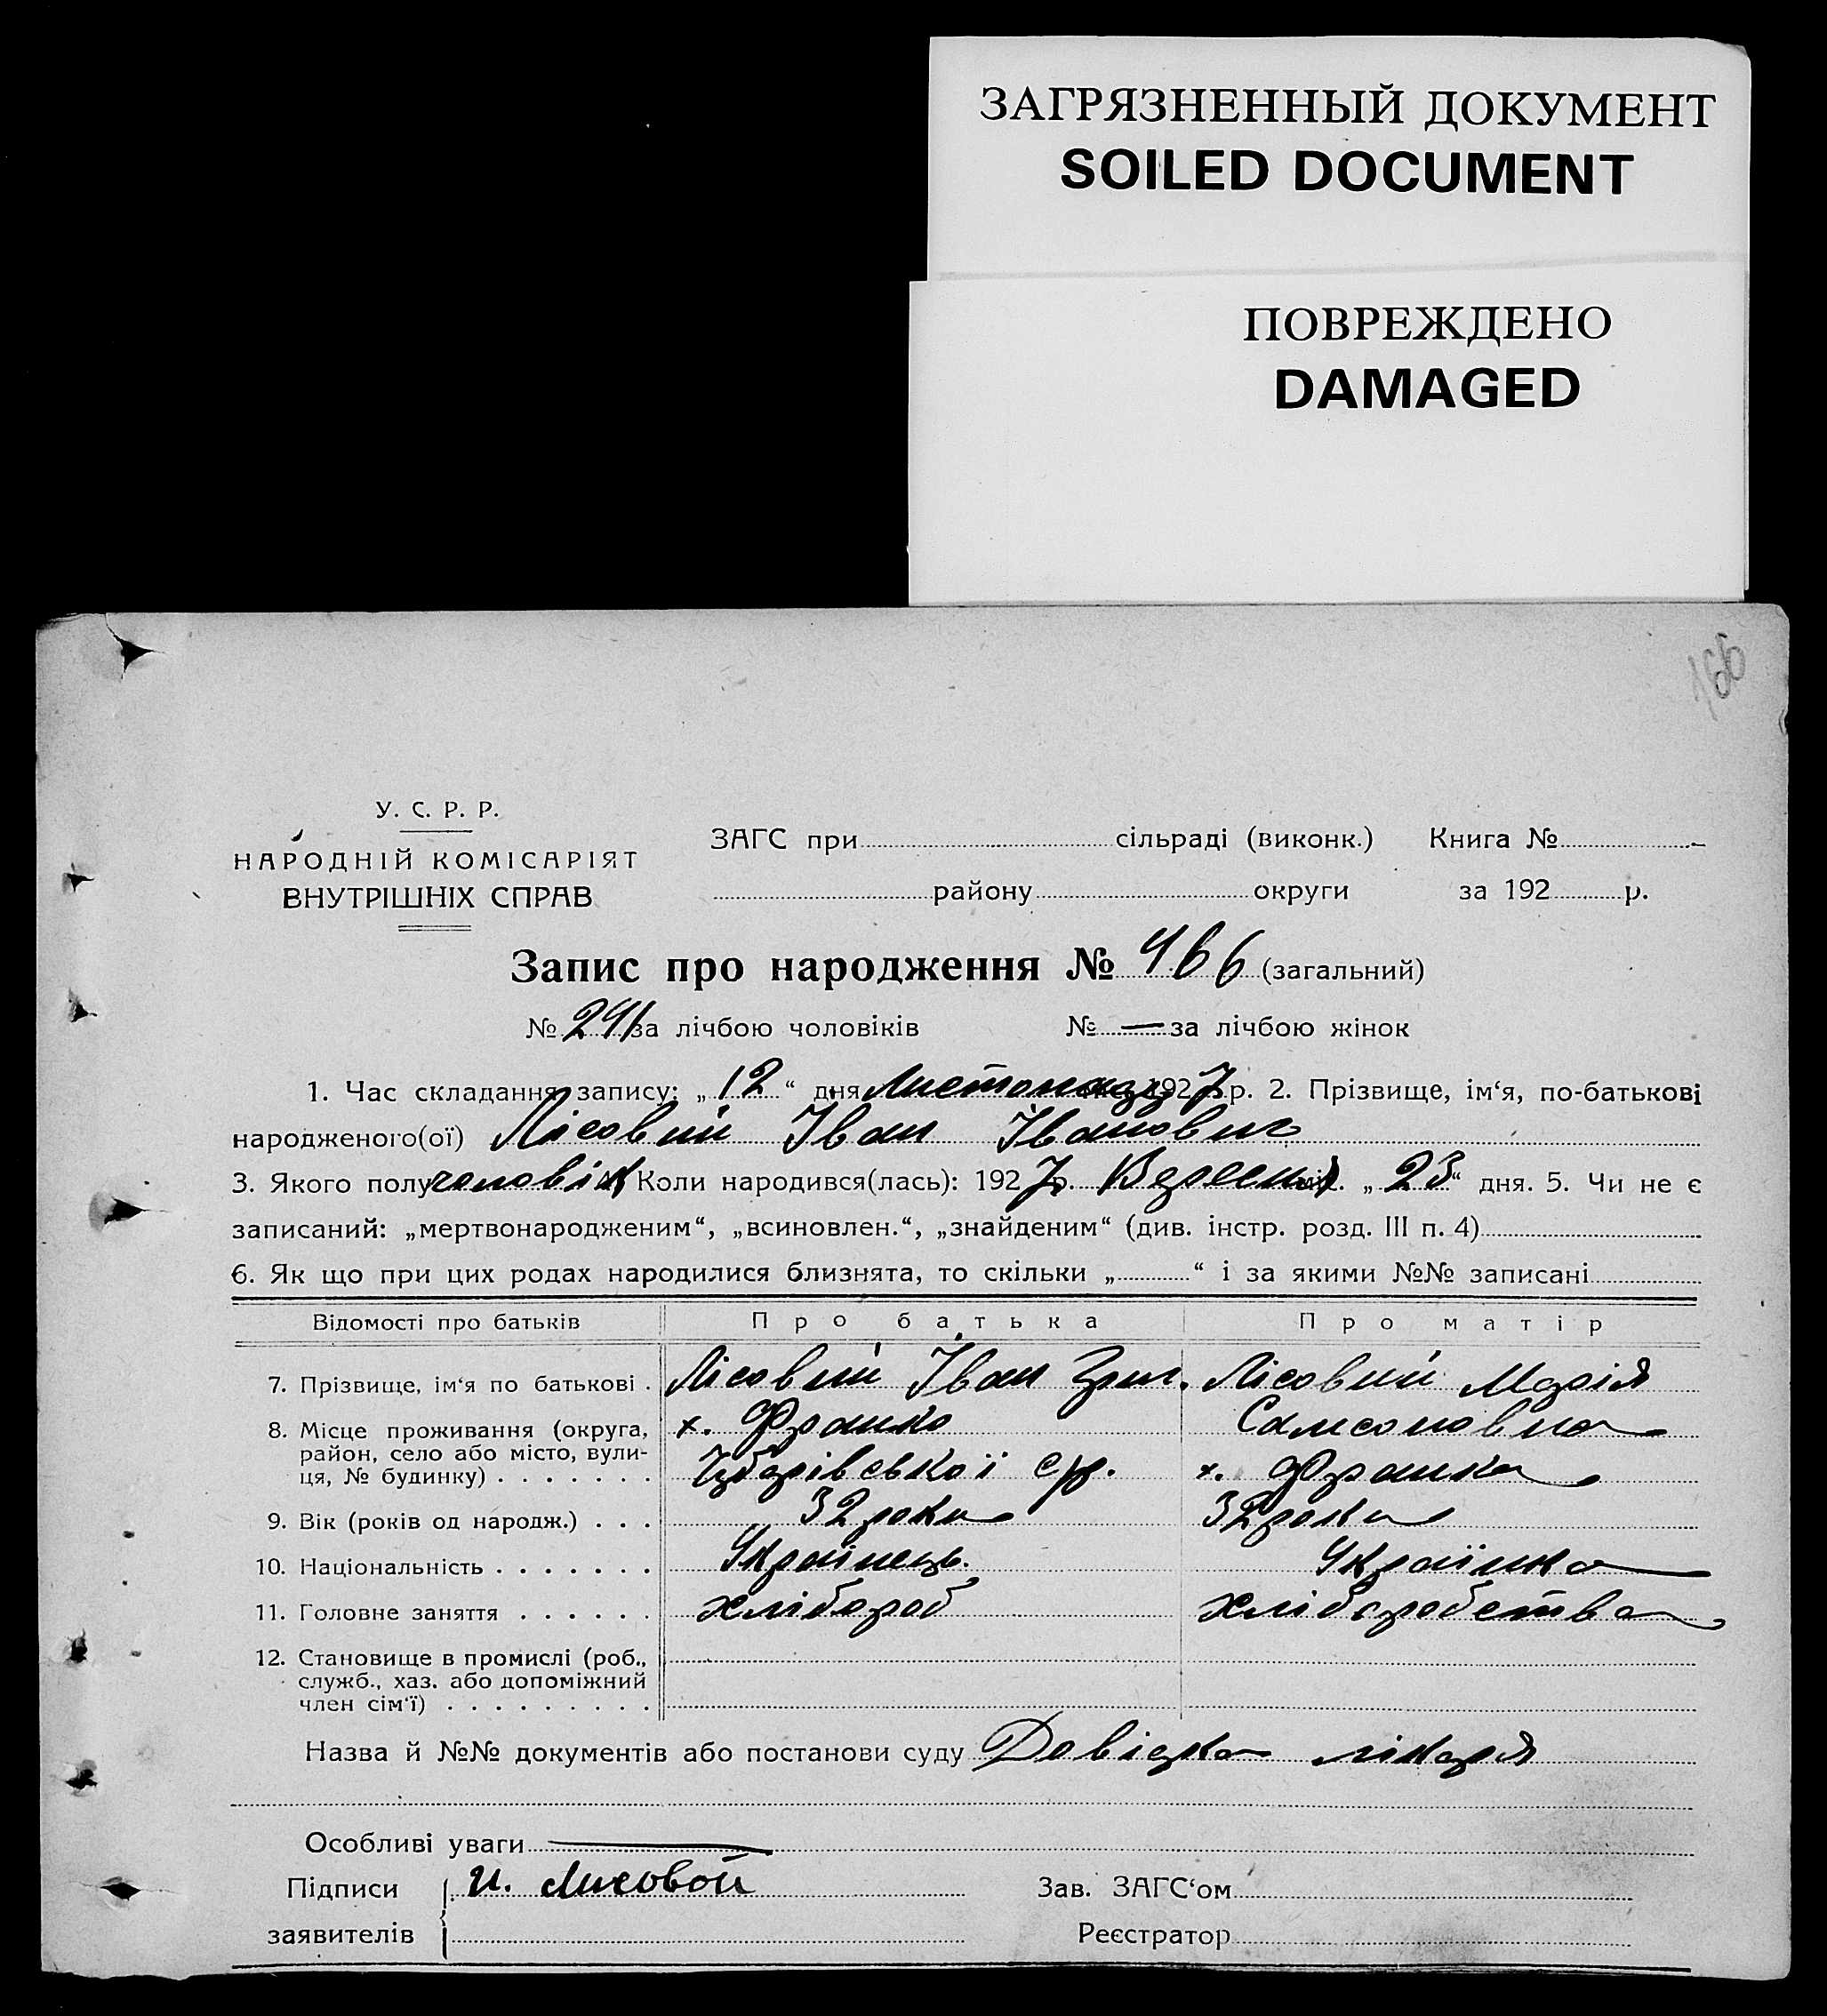 ЗАГРЯЗНЕННЫЙ ДОКУМЕНТ
SOILED DOCUMENT
ПОВРЕЖДЕНО
DAMAGED
166
У. С. Р. Р.
НАРОДНІЙ КОМІСАРІЯТ
ВНУТРІШНІХ СПРАВ
ЗАГС при сільраді (виконк.) Книга №
району округи за 192 р.
Запис про народження № 466 (загальний)
№ 241 за лічбою чоловіків № — за лічбою жінок
1. Час складання запису: „12“ дня Листопада 1927 р. 2. Прізвище, ім‘я, по-батькові
народженого(ої) Лісовий Іван Іванович
3. Якого полу чоловік Коли народився(лась): 1927 р. Вересня міс. „23“ дня. 5. Чи не є
записаний: „мертвонародженим“, „всиновлен.“, „знайденим“ (див. інстр. розд. III п. 4)
6. Як що при цих родах народилися близнята, то скільки „ “ і за якими №№ записані
Відомості про батьків Про батька Про матір
7. Прізвище, ім‘я по батькові . Лісовий Іван Григ. Лісовий Марія
8. Місце проживання (округа, х. Франко Самсоновна
район, село або місто, вули-
ця, № будинку) . . . . . . . с/р. х. Франка
9. Вік (років од народж.) . . . 32 роки 32 роки
10. Національність . . . . . . . Українець. Українка
11. Головне заняття . . . . . . хлібороб хліборобства
12. Становище в промислі (роб.,
служб., хаз. або допоміжний
член сім‘ї) . . . . . . . . .
Назва й №№ документів або постанови суду Довідка лікаря
Особливі уваги —
Підписи И. Лисовой Зав. ЗАГС‘ом
заявителів Реєстратор